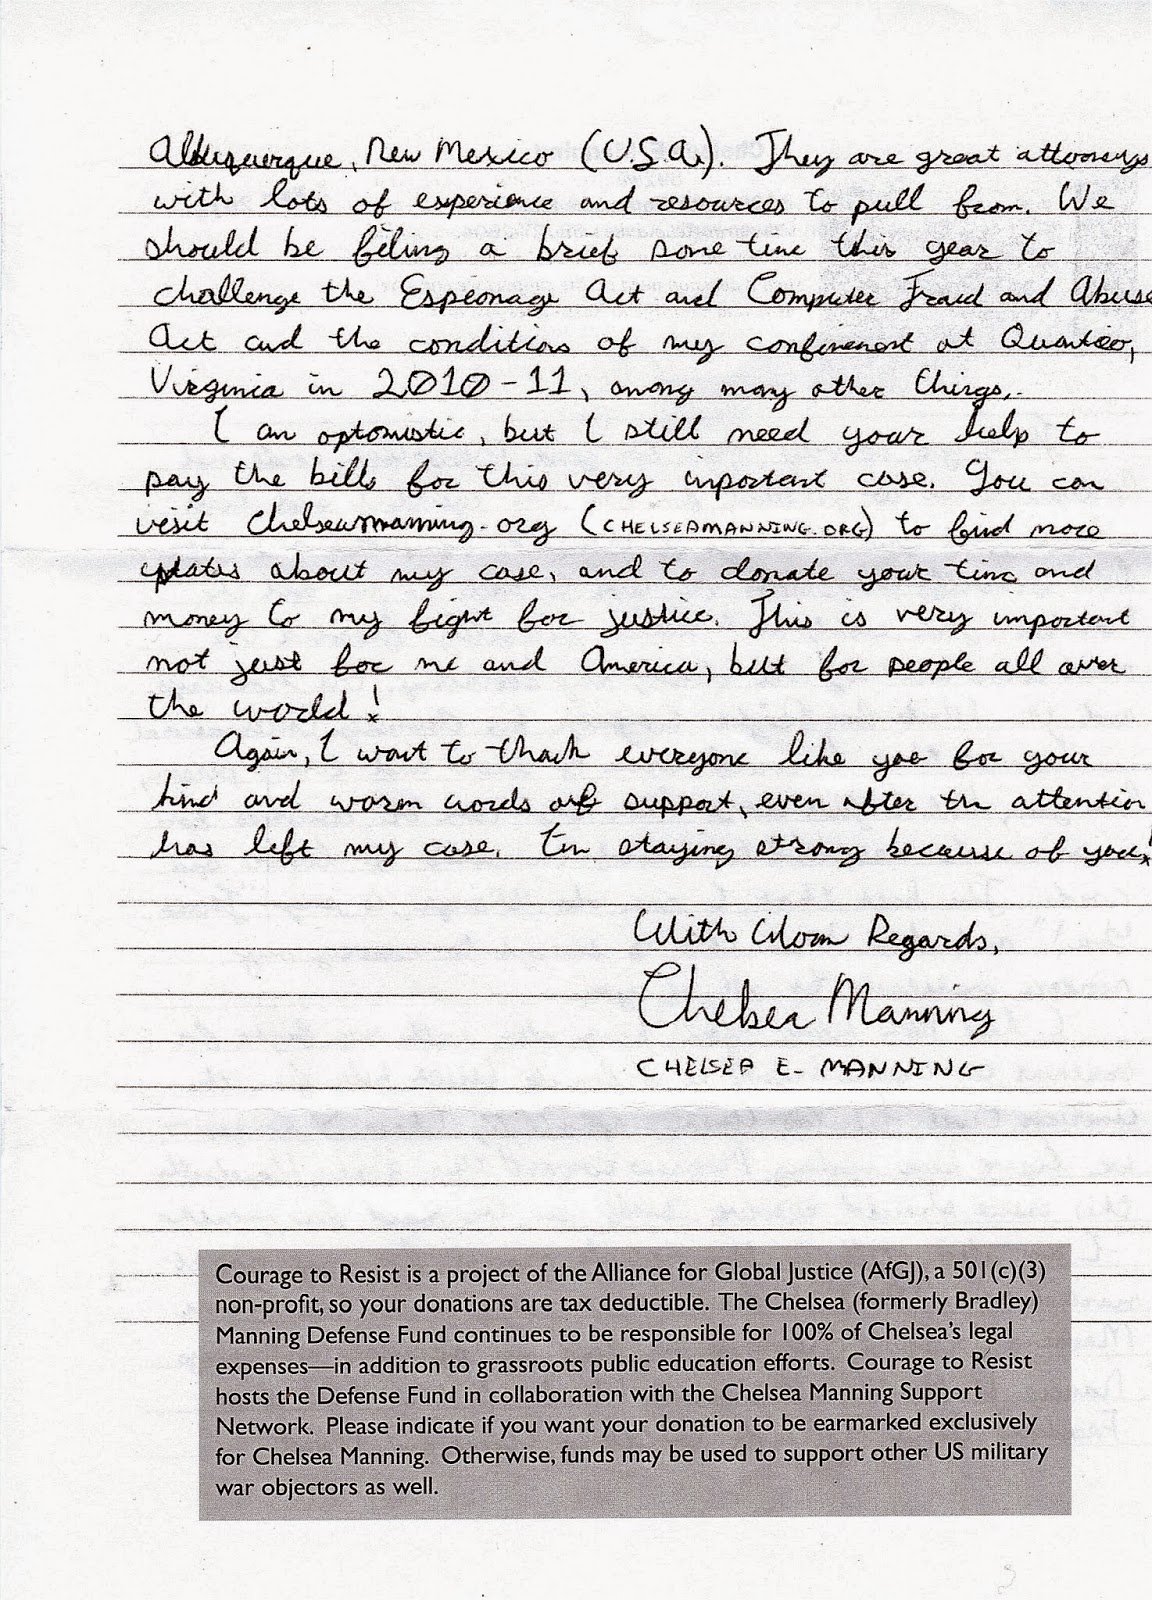 Albuquerque, New Mexico (U.S.A.). They are great attorneys
with lots of experience and resources to pull from. We
should be filing a brief some time this year to
challenge the Espeonage Act and Computer Fraud and Abuse
Act and the conditions of my confinement at Quantico,
Virginia in 2010-11, among many other things.
I am optomistic, but I still need your help to
pay the bills for this very important case. You can
visit chelseamanning.org (CHELSEAMANNING.ORG) to find more
updates about my case, and to donate your time and
money to my fight for justice. This is very important
not just for me and America, but for people all over
the world!
Again, I want to thank everyone like you for your
kind and warm words of support, even after the attention
has left my case. I'm staying strong because of you!
With Warm Regards,
Chelsea Manning
CHELSEA E. MANNING
Courage to Resist is a project of the Alliance for Global Justice (AfGJ), a 501(c)(3)
non-profit, so your donations are tax deductible. The Chelsea (formerly Bradley)
Manning Defense Fund continues to be responsible for 100% of Chelsea's legal
expenses—in addition to grassroots public education efforts. Courage to Resist
hosts the Defense Fund in collaboration with the Chelsea Manning Support
Network. Please indicate if you want your donation to be earmarked exclusively
for Chelsea Manning. Otherwise, funds may be used to support other US military
war objectors as well.